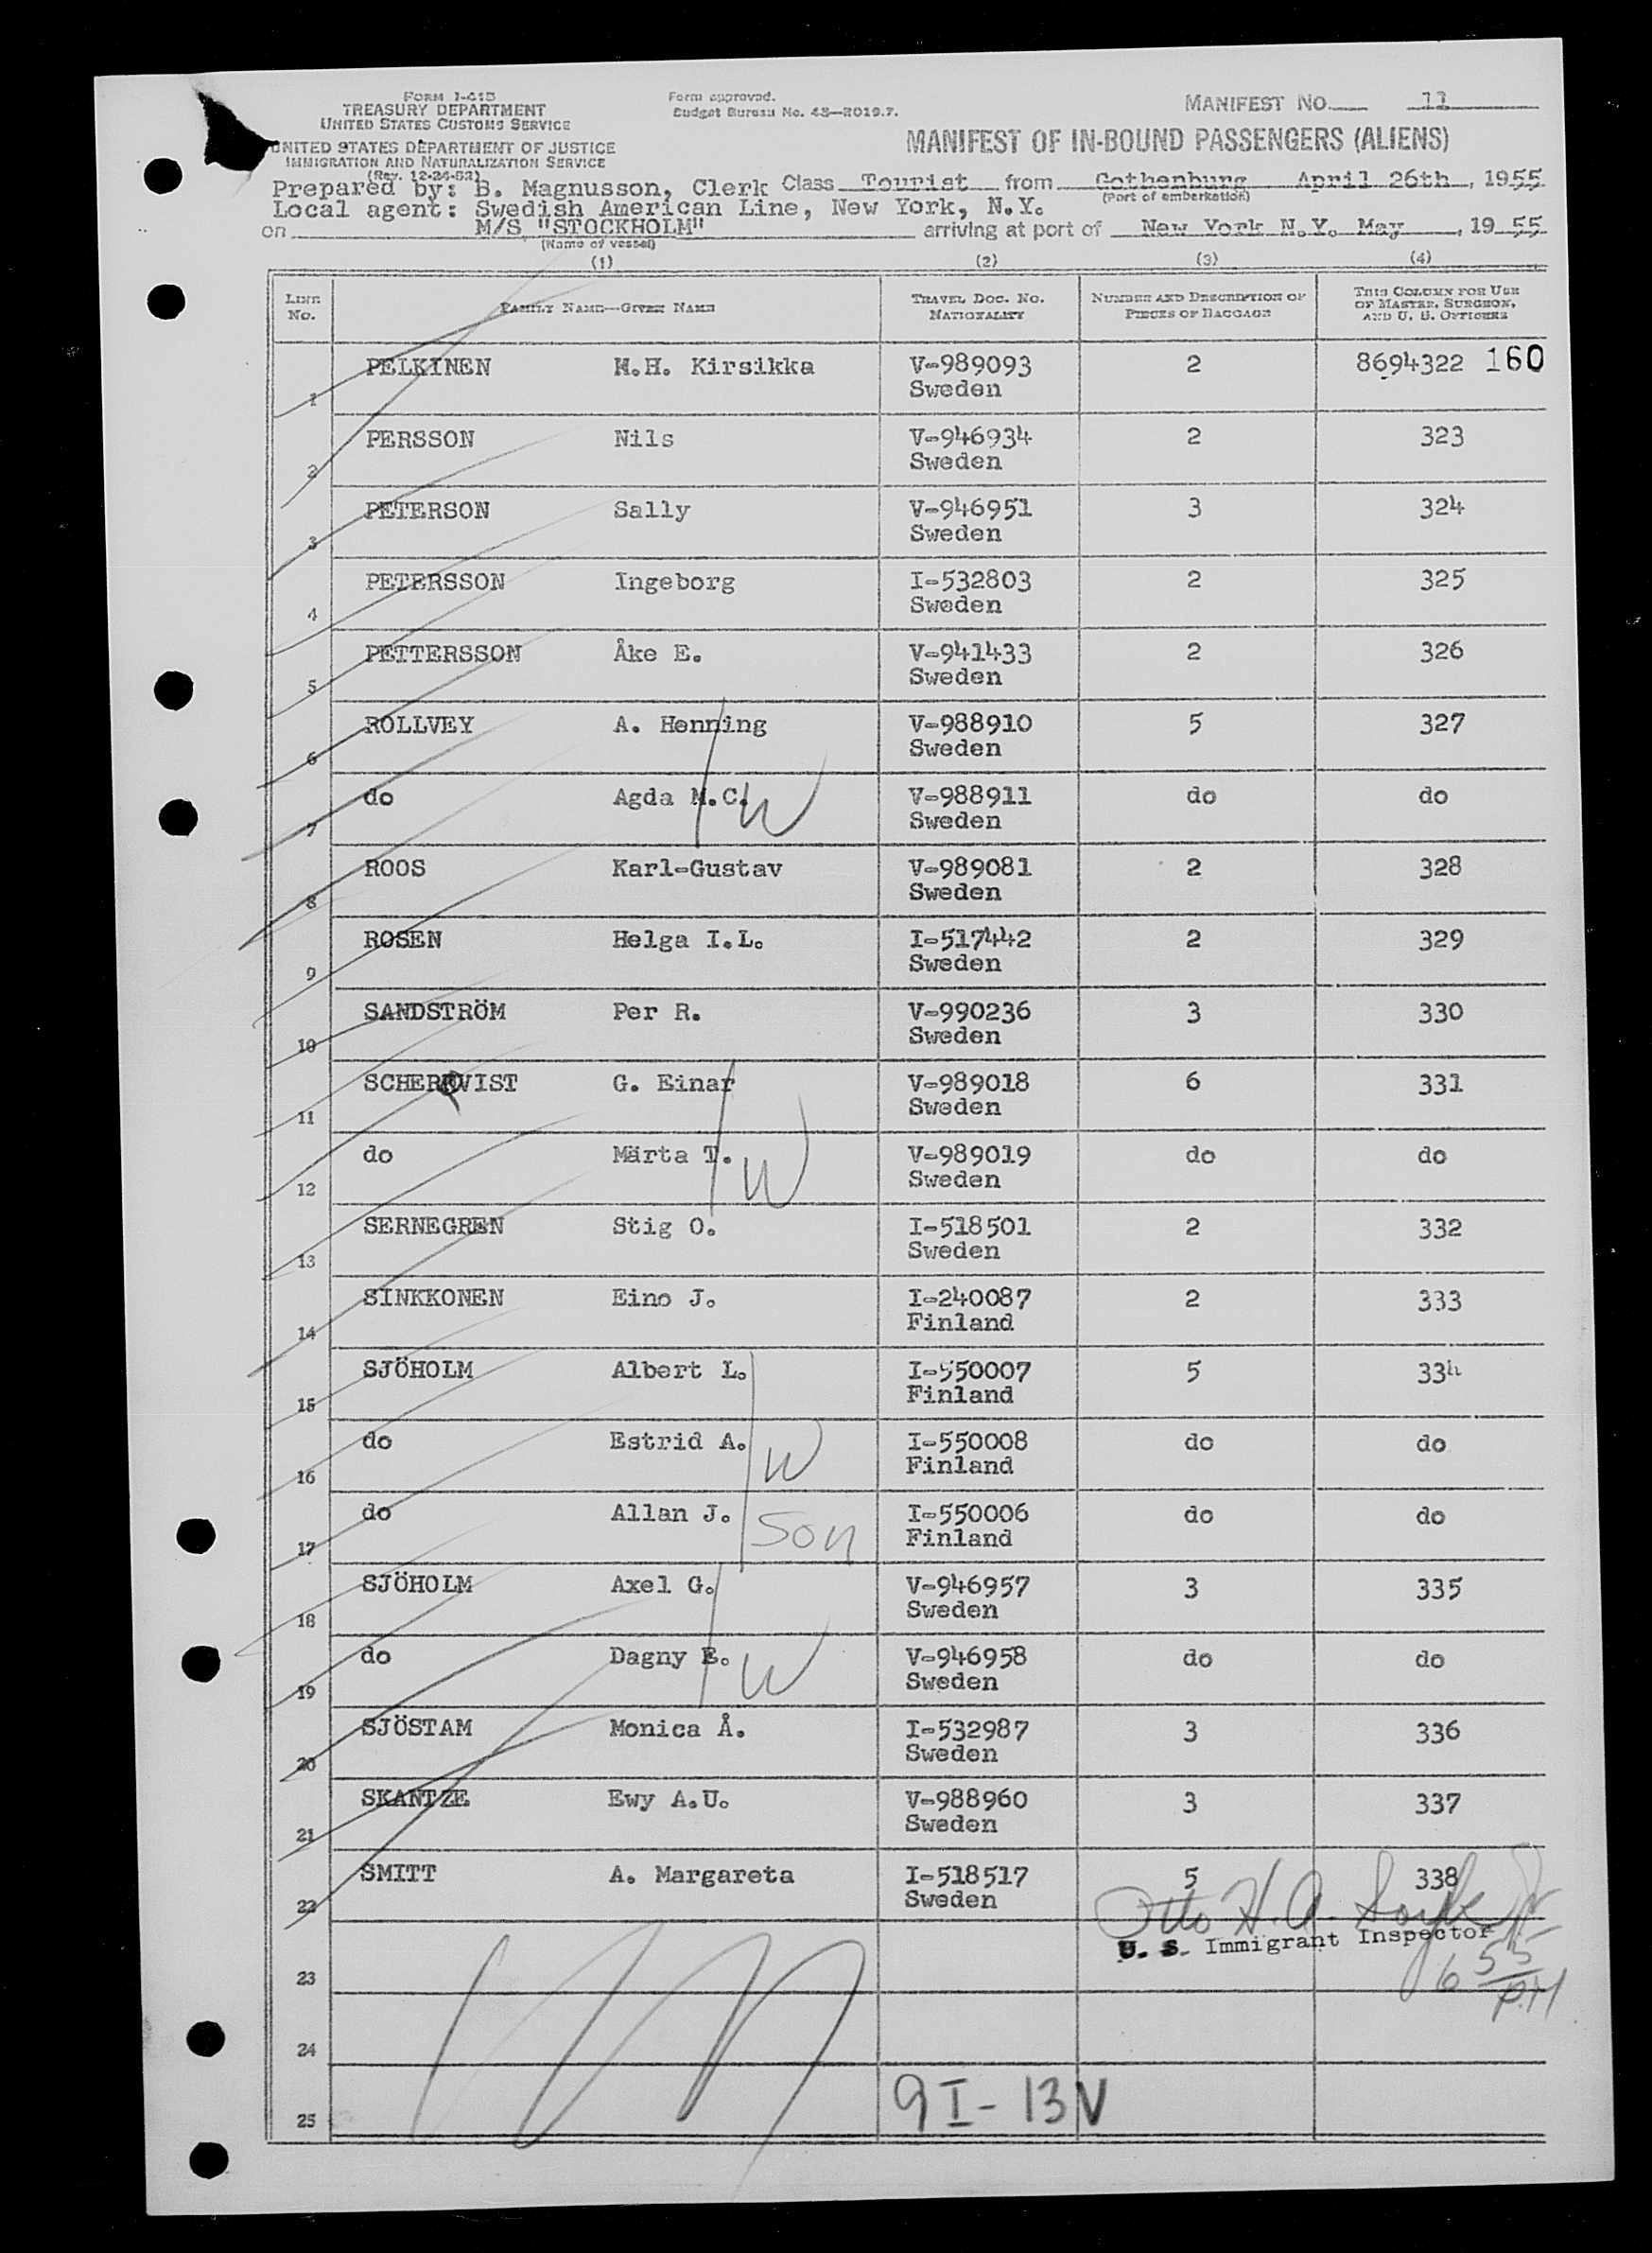 FORM I-415
TREASURY DEPARTMENT
UNITED STATES CUSTOMS SERVICE
UNITED STATES DEPARTMENT OF JUSTICE
IMMIGRATION AND NATURALIZATION SERVICE
(Rev. 12-24-52)
Form approved.
Budget Bureau No. 43—R019.7.
MANIFEST NO. 11
MANIFEST OF IN-BOUND PASSENGERS (ALIENS)
Prepared by: B. Magnusson, Clerk Class Tourist from Gothenburg April 26th, 1955
Local agent: Swedish American Line, New York, N.Y. (Port of embarkation)
on M/S "STOCKHOLM" arriving at port of New York N.Y. May , 19 55
(Name of vessel)
(1) (2) (3) (4)
LINE NO. FAMILY NAME—GIVEN NAME TRAVEL DOC. NO. NATIONALITY NUMBER AND DESCRIPTION OF PIECES OF BAGGAGE THIS COLUMN FOR USE OF MASTER, SURGEON, AND U. S. OFFICERS
1 PELKINEN M.H. Kirsikka V-989093 2 8694322 160
Sweden
2 PERSSON Nils V-946934 2 323
Sweden
3 PETERSON Sally V-946951 3 324
Sweden
4 PETERSSON Ingeborg I-532803 2 325
Sweden
5 PETTERSSON Åke E. V-941433 2 326
Sweden
6 ROLLVEY A. Henning V-988910 5 327
Sweden
7 do Agda M.C. W V-988911 do do
Sweden
8 ROOS Karl-Gustav V-989081 2 328
Sweden
9 ROSEN Helga I.L. I-517442 2 329
Sweden
10 SANDSTRÖM Per R. V-990236 3 330
Sweden
11 SCHERQVIST G. Einar V-989018 6 331
Sweden
12 do Märta T. W V-989019 do do
Sweden
13 SERNEGREN Stig O. I-518501 2 332
Sweden
14 SINKKONEN Eino J. I-240087 2 333
Finland
15 SJÖHOLM Albert L. I-550007 5 334
Finland
16 do Estrid A. W I-550008 do do
Finland
17 do Allan J. Son I-550006 do do
Finland
18 SJÖHOLM Axel G. V-946957 3 335
Sweden
19 do Dagny E. W V-946958 do do
Sweden
20 SJÖSTAM Monica Å. I-532987 3 336
Sweden
21 SKANTZE Ewy A.U. V-988960 3 337
Sweden
22 SMITT A. Margareta I-518517 5 338
Sweden
Otto H. A.
U. S. Immigrant Inspector
23 6 55 PM
24
25 9 I - 13 V